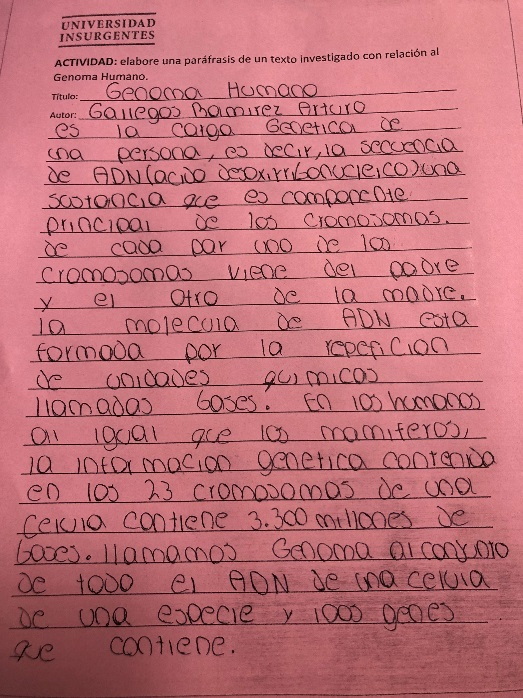 UNIVERSIDAD
INSURGENTES
ACTIVIDAD: elabore una paráfrasis de un texto investigado con relación al
Genoma Humano.
Título: Genoma Humano
Autor: Gallegos Ramirez Arturo
es la carga Genetica de
una persona, es decir, la secuencia
de ADN (acido desoxirribonucleico) una
sustancia que es componente
principal de los cromosomas.
de cada par uno de los
cromosomas viene del padre
y el otro de la madre.
la molecula de ADN esta
formada por la repeticion
de unidades quimicas
llamadas bases. En los humanos
al igual que los mamiferos,
la informacion genetica contenida
en los 23 cromosomas de una
celula contiene 3.300 millones de
bases. llamamos Genoma al conjunto
de todo el ADN de una celula
de una especie y los genes
que contiene.